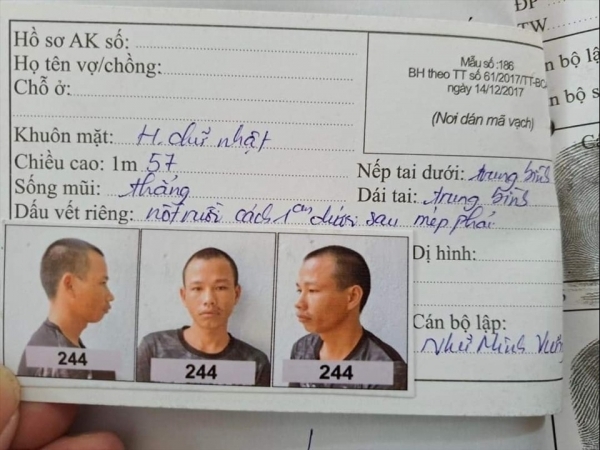 Hồ sơ AK số:
Họ tên vợ/chồng:
Chỗ ở:
Mẫu số :186
BH theo TT số 61/2017/TT-BCA
ngày 14/12/2017
(Nơi dán mã vạch)
Khuôn mặt: H. chữ nhật
Chiều cao: 1m 57
Sống mũi: thẳng
Nếp tai dưới: trung bình
Dái tai: trung bình
Dấu vết riêng: nốt ruồi cách 1cm dưới sau mép phải
Dị hình:
Cán bộ lập:
Như Minh
244
244
244
ĐP
TW
n bộ lậ
n bộ s